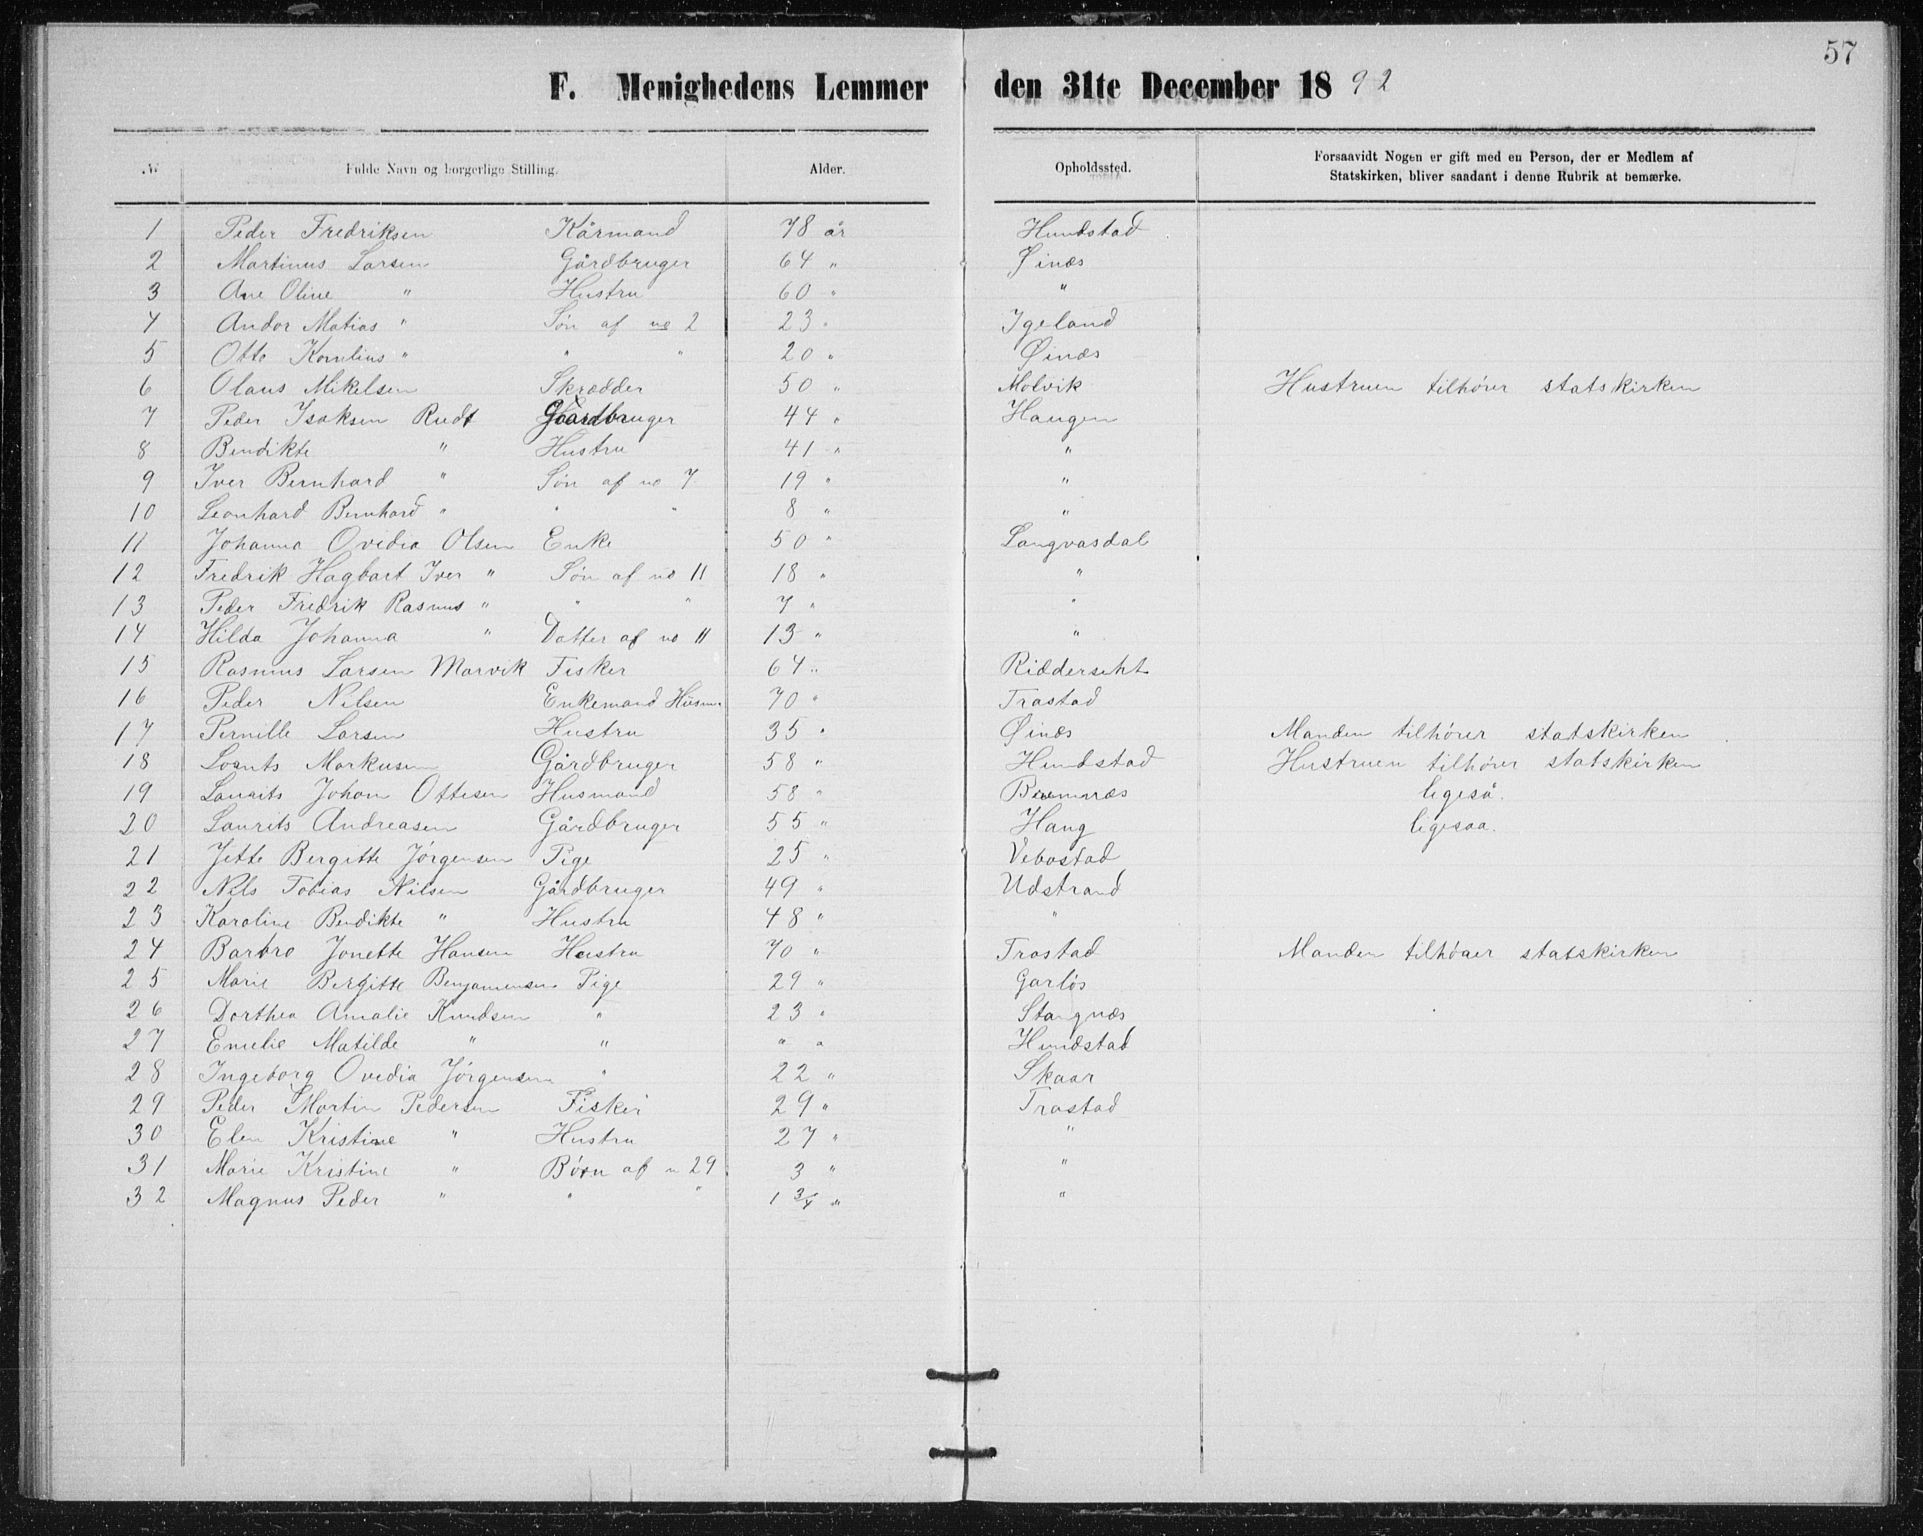 57
F. Menighedens Lemmer den 31te December 1892
№ Fulde Navn og borgerlige Stilling. Alder. Opholdssted. Forsaavidt Nogen er gift med en Person, der er Medlem af
Statskirken, bliver saadant i denne Rubrik at bemærke.
1 Peder Fredriksen Kårmand 78 år Hundstad
2 Martinus Larsen Gårdbruger 64 " Øinæs
3 Ane Oline " Hustru 60 " "
4 Andor Matias " Søn af no 2 23 " Igeland
5 Otto Kornlius " " " 20 " Øinæs
6 Olaus Mikelsen Skrædder 50 " Molvik Hustruen tilhører statskirken
7 Peder Isaksen Rudt Gårdbruger 44 " Haugen
8 Bendikte " Hustru 41 " "
9 Iver Bernhard " Søn af no 7 19 " "
10 Leonhard Bernhard " " " 8 " "
11 Johanna Ovedia Olsen Enke 50 " Langvasdal
12 Fredrik Hagbart Iver " Søn af no 11 18 " "
13 Peder Fredrik Rasmus " " " 7 " "
14 Hilda Johanna " Datter af no 11 13 " "
15 Rasmus Larsen Marvik Fisker 64 " Ridderseht
16 Peder Nilsen Enkemand Husm. 70 " Trastad
17 Pernille Larsen Hustru 35 " Øinæs Manden tilhører statskirken
18 Markusen Gårdbruger 58 " Hundstad Hustruen tilhører statskirken
19 Laurits Johan Ottesen Husmand 58 " ligeså.
20 Laurits Andreasen Gårdbruger 55 " Hang ligesaa.
21 Jette Bergitte Jörgensen Pige 25 " Vebostad
22 Nils Tobias Nilsen Gårdbruger 49 " Udstrand
23 Karoline Bendikte " Hustru 48 " "
24 Barbro Jonette Hansen Hustru 70 " Trastad Manden tilhører statskirken
25 Marie Bergitte Benjamensen Pige 29 " Garløs
26 Dorthea Amalie Knudsen " 23 " Stangnæs
27 Emelie Matilde " " " " Hundstad
28 Ingeborg Ovedia Jörgensen " 22 " Skaar
29 Peder Martin Pedersen Fisker 29 " Trastad
30 Elen Kristine " Hustru 27 " "
31 Marie Kristine " Børn af n 29 3 " "
32 Magnus Peder " " " 1 3/4 " "